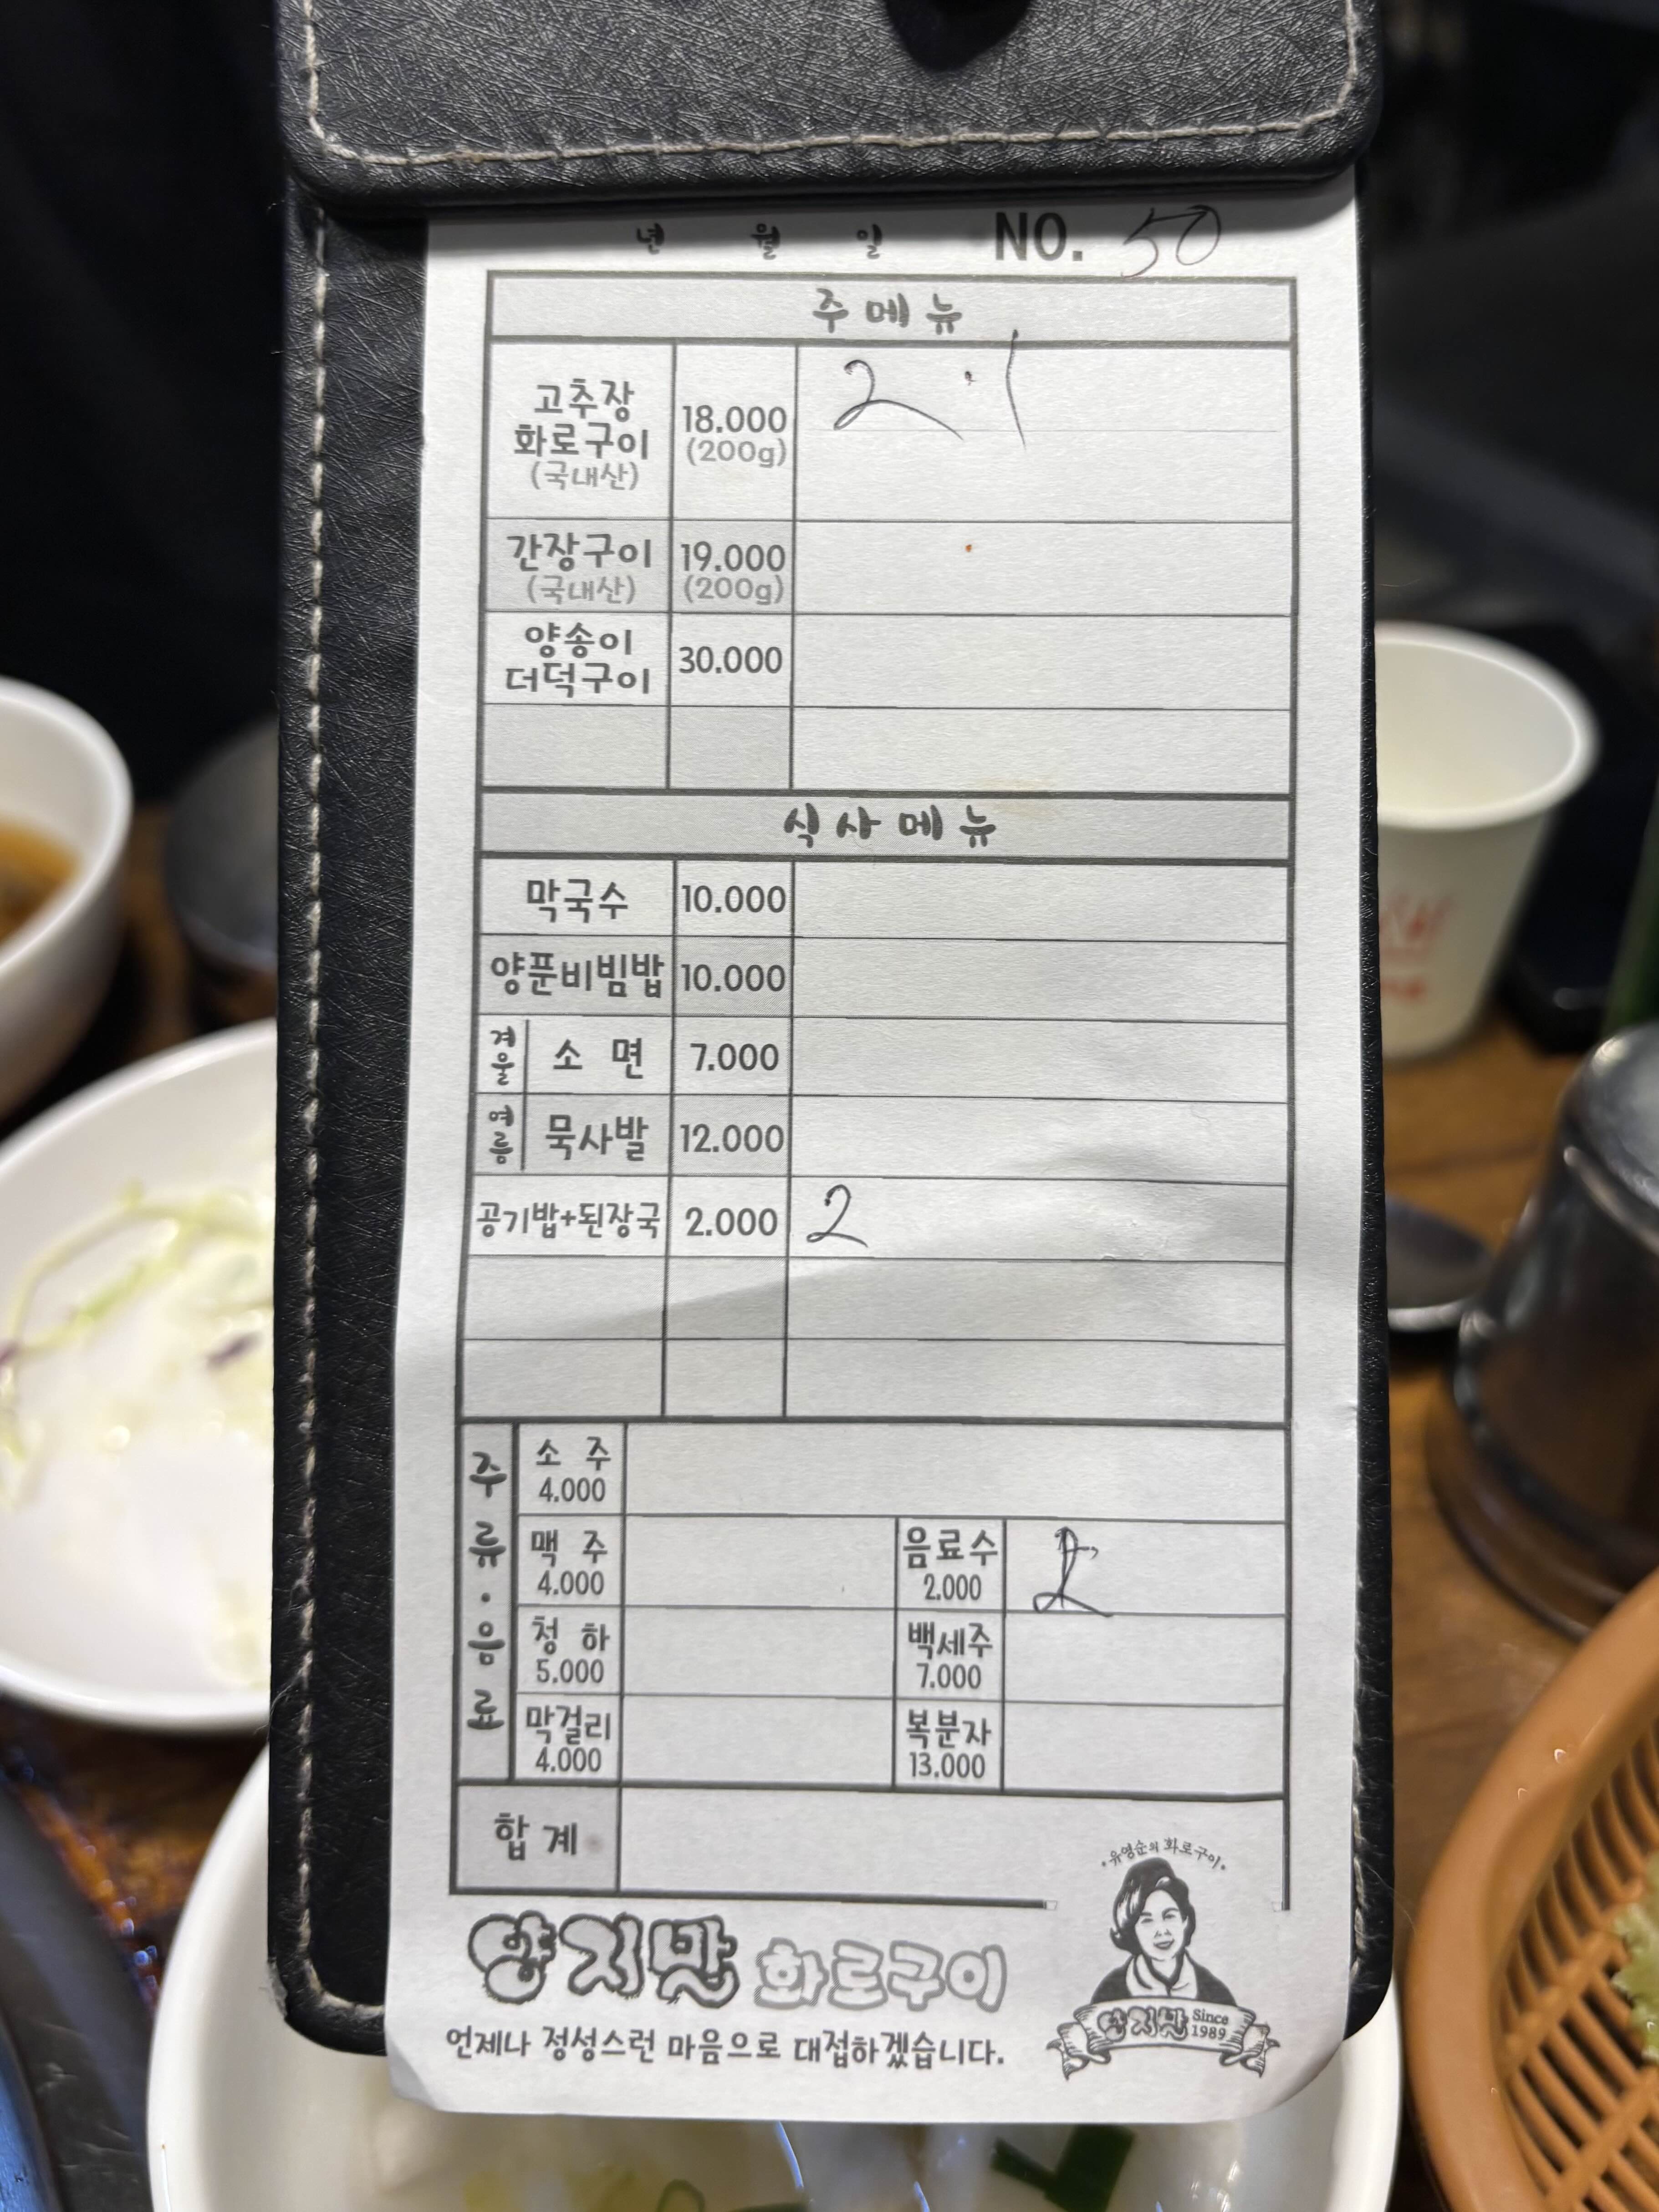 년 월 일 NO. 50
주메뉴
고추장
화로구이
(국내산)
18.000
(200g)
2 . 1
간장구이
(국내산)
19.000
(200g)
양송이
더덕구이
30.000
식사메뉴
막국수 10.000
양푼비빔밥 10.000
겨울 소 면 7.000
여름 묵사발 12.000
공기밥+된장국 2.000 2
주류·음료
소 주
4.000
맥 주
4.000
음료수
2.000
청 하
5.000
백세주
7.000
막걸리
4.000
복분자
13.000
합계
유영순의 화로구이
양지말 화로구이
양지말 Since
1989
언제나 정성스런 마음으로 대접하겠습니다.